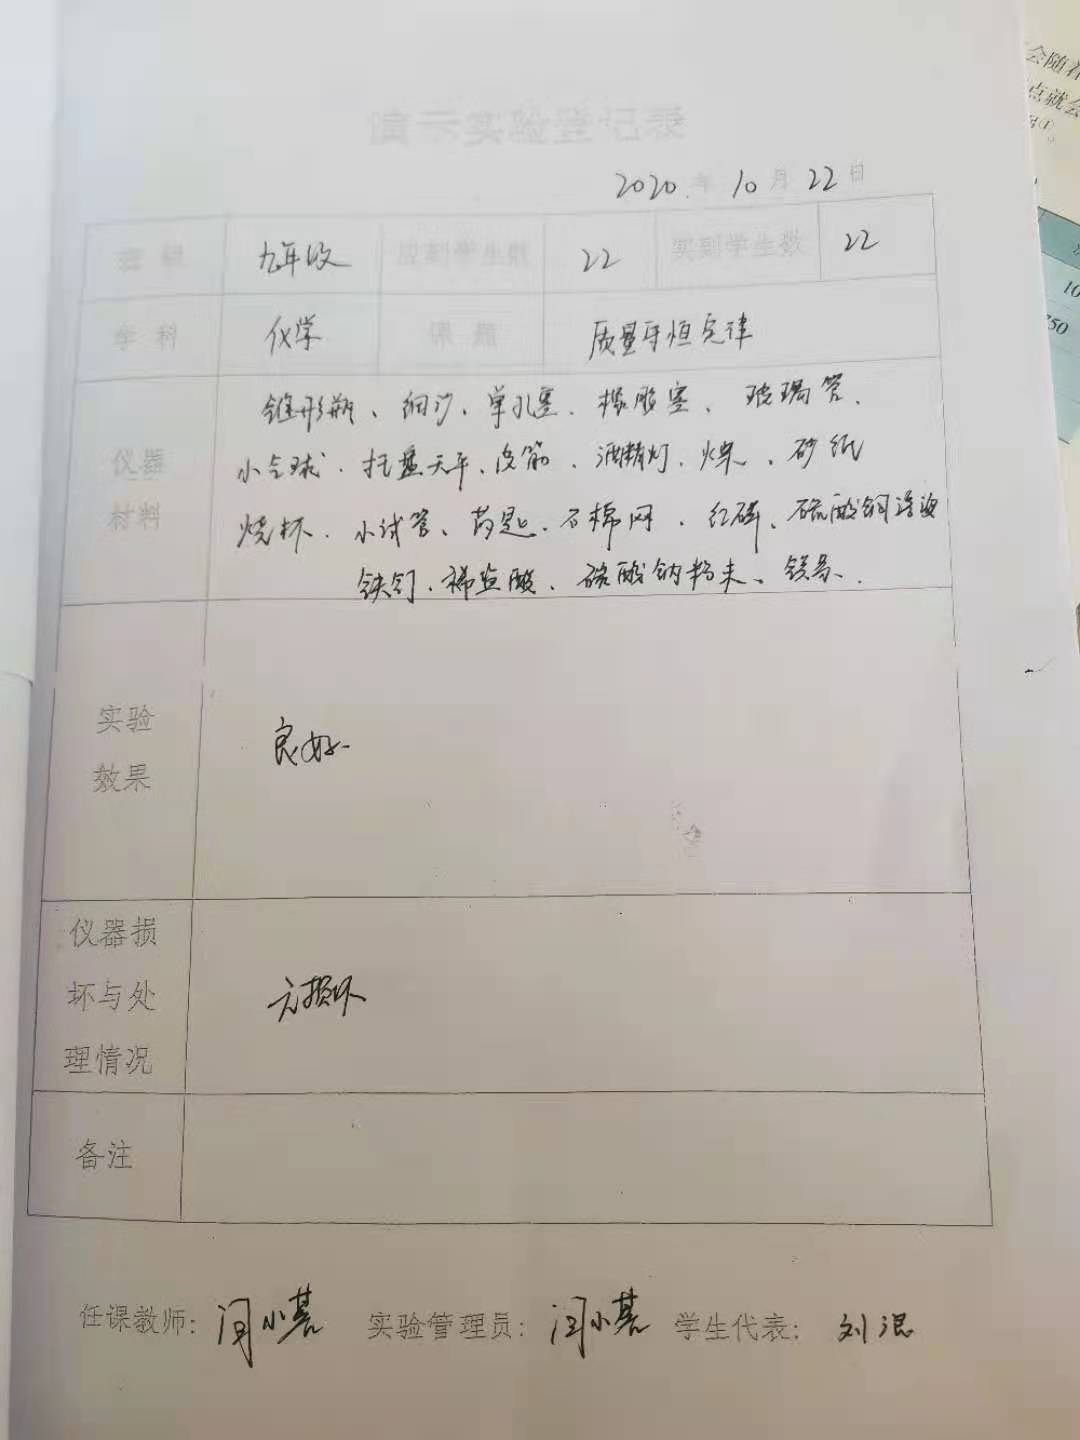 演示实验登记表
2020年10月22日
班级 九年级 应到学生数 22 实到学生数 22
学科 化学 课题 质量守恒定律
仪器材料
锥形瓶、细沙、单孔塞、橡胶塞、玻璃管、
小气球、托盘天平、皮筋、酒精灯、火柴、砂纸
烧杯、小试管、药匙、石棉网、红磷、硫酸铜溶液
铁钉、稀盐酸、碳酸钠粉末、镁条、
实验
效果
良好
仪器损
坏与处
理情况
无损坏
备注
任课教师: 闫小莟 实验管理员: 闫小莟 学生代表: 刘
会随着
点就会
10
750